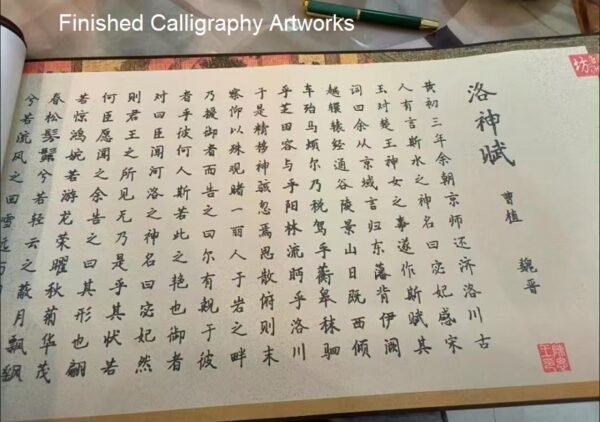 Finished Calligraphy Artworks
洛神赋
曹植 魏晋
黄初三年余朝京师还济洛川古
人有言斯水之神名曰宓妃感宋
玉对楚王神女之事遂作斯赋其
词曰余从京域言归东藩背伊阙
越轘辕经通谷陵景山日既西倾
车殆马烦尔乃税驾乎蘅皋秣驷
乎芝田容与乎阳林流眄乎洛川
于是精移神骇忽焉思散俯则未
察仰以殊观睹一丽人于岩之畔
乃援御者而告之曰尔有觌于彼
者乎彼何人斯若此之艳也御者
对曰臣闻河洛之神名曰宓妃然
则君王之所见无乃是乎其状若
何臣愿闻之余告之曰其形也翩
若惊鸿婉若游龙荣曜秋菊华茂
春松髣髴兮若轻云之蔽月飘飖
兮若流风之回雪远